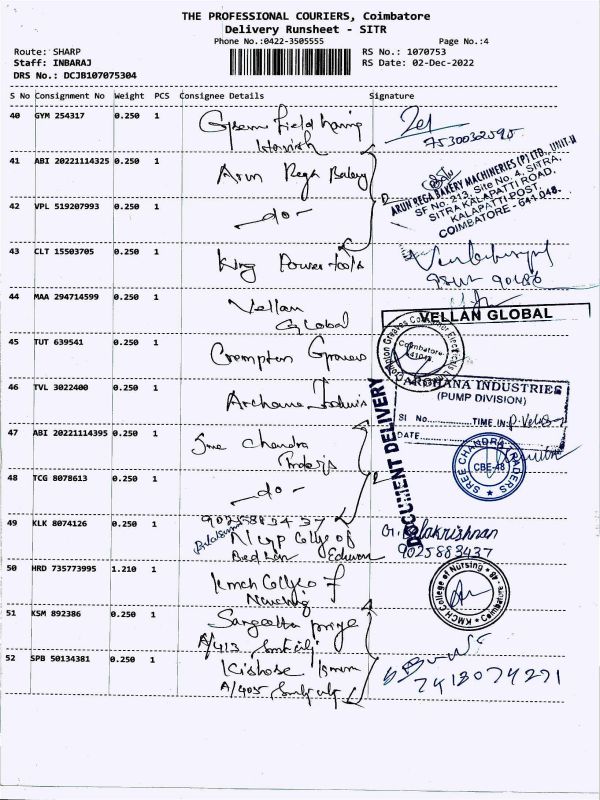 THE PROFESSIONAL COURIERS, Coimbatore
Delivery Runsheet - SITR
Phone No.:0422-3505555 Page No.:4
Route: SHARP RS No.: 1070753
Staff: INBARAJ RS Date: 02-Dec-2022
DRS No.: DCJB107075304
S No Consignment No Weight PCS Consignee Details Signature
40 GYM 254317 0.250 1
7530032595
41 ABI 20221114325 0.250 1 Arun Rega Bakery
ARUN REGA BAKERY MACHINERIES (P) LTD., UNIT-II
SF No. 213, Site No. 4, SITRA,
SITRA KALAPATTI ROAD,
KALAPATTI POST,
COIMBATORE - 641 048.
42 VPL 519207993 0.250 1 -do-
43 CLT 15503705 0.250 1 King Power tools
44 MAA 294714599 0.250 1 Vellan
Global
VELLAN GLOBAL
45 TUT 639541 0.250 1 Crompton Greaves
Coimbatore
46 TVL 3022400 0.250 1 Archana
ARCHANA INDUSTRIES
(PUMP DIVISION)
SI No. TIME IN:
DATE
DOCUMENT DELIVERY
47 ABI 20221114395 0.250 1 Sree Chandra
Traders
SREE CHANDRA TRADERS
CBE-48
48 TCG 8078613 0.250 1 -do-
49 KLK 8074126 0.250 1 9025883437
College of
G. Balakrishnan
9025883437
50 HRD 735773995 1.210 1 Kmch College of
Nursing
KMCH College of Nursing
51 KSM 892386 0.250 1 Sangeetha priya
A/413
52 SPB 50134381 0.250 1 Kishore
A/405
7418074271